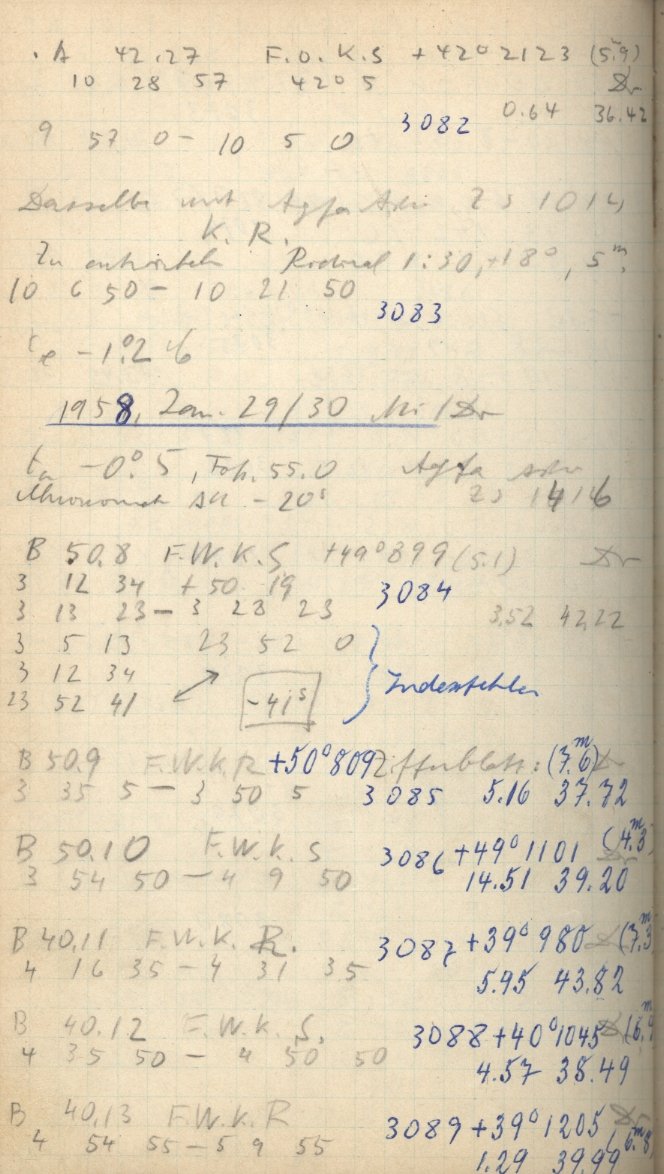 . A 42.27 F.O.K.S +42° 2123 (5.9)
10 28 57 42° 5 Dr
0.64 36.42
9 57 0 – 10 5 0 3082
Dasselbe mit Agfa
K. R.
Zu entwickeln Rodinal 1:30, +18°, 5ᵐ.
10 6 50 – 10 21 50
3083
–1°.2
1958, Jan. 29/30 /Dr
–0°.5, 55.0 Agfa
–20ˢ
B 50.8 F.W.K.S +49° 899 (5.1) Dr
3 12 34 +50 19 3084
3 13 23 – 3 28 23 3.52 42.22
3 5 13 23 52 0
3 12 34 Indexfehler
23 52 41 –41ˢ
B 50.9 F.W.K.R +50° 809 Zifferblatt: (7.6ᵐ) Dr
3 35 5 – 3 50 5 3085 5.16 37.72
B 50.10 F.W.K.S 3086 +49° 1101 (4.3ᵐ)
3 54 50 – 4 9 50 14.51 39.20
B 40.11 F.W.K.R. 3087 +39° 980 Dr
4 16 35 – 4 31 35 5.95 43.82
B 40.12 F.W.K.S. 3088 +40° 1045 Dr
4 35 50 – 4 50 50 4.57 38.49
B 40.13 F.W.K.R 3089 +39° 1205 Dr
4 54 55 – 5 9 55 1.29 39.99